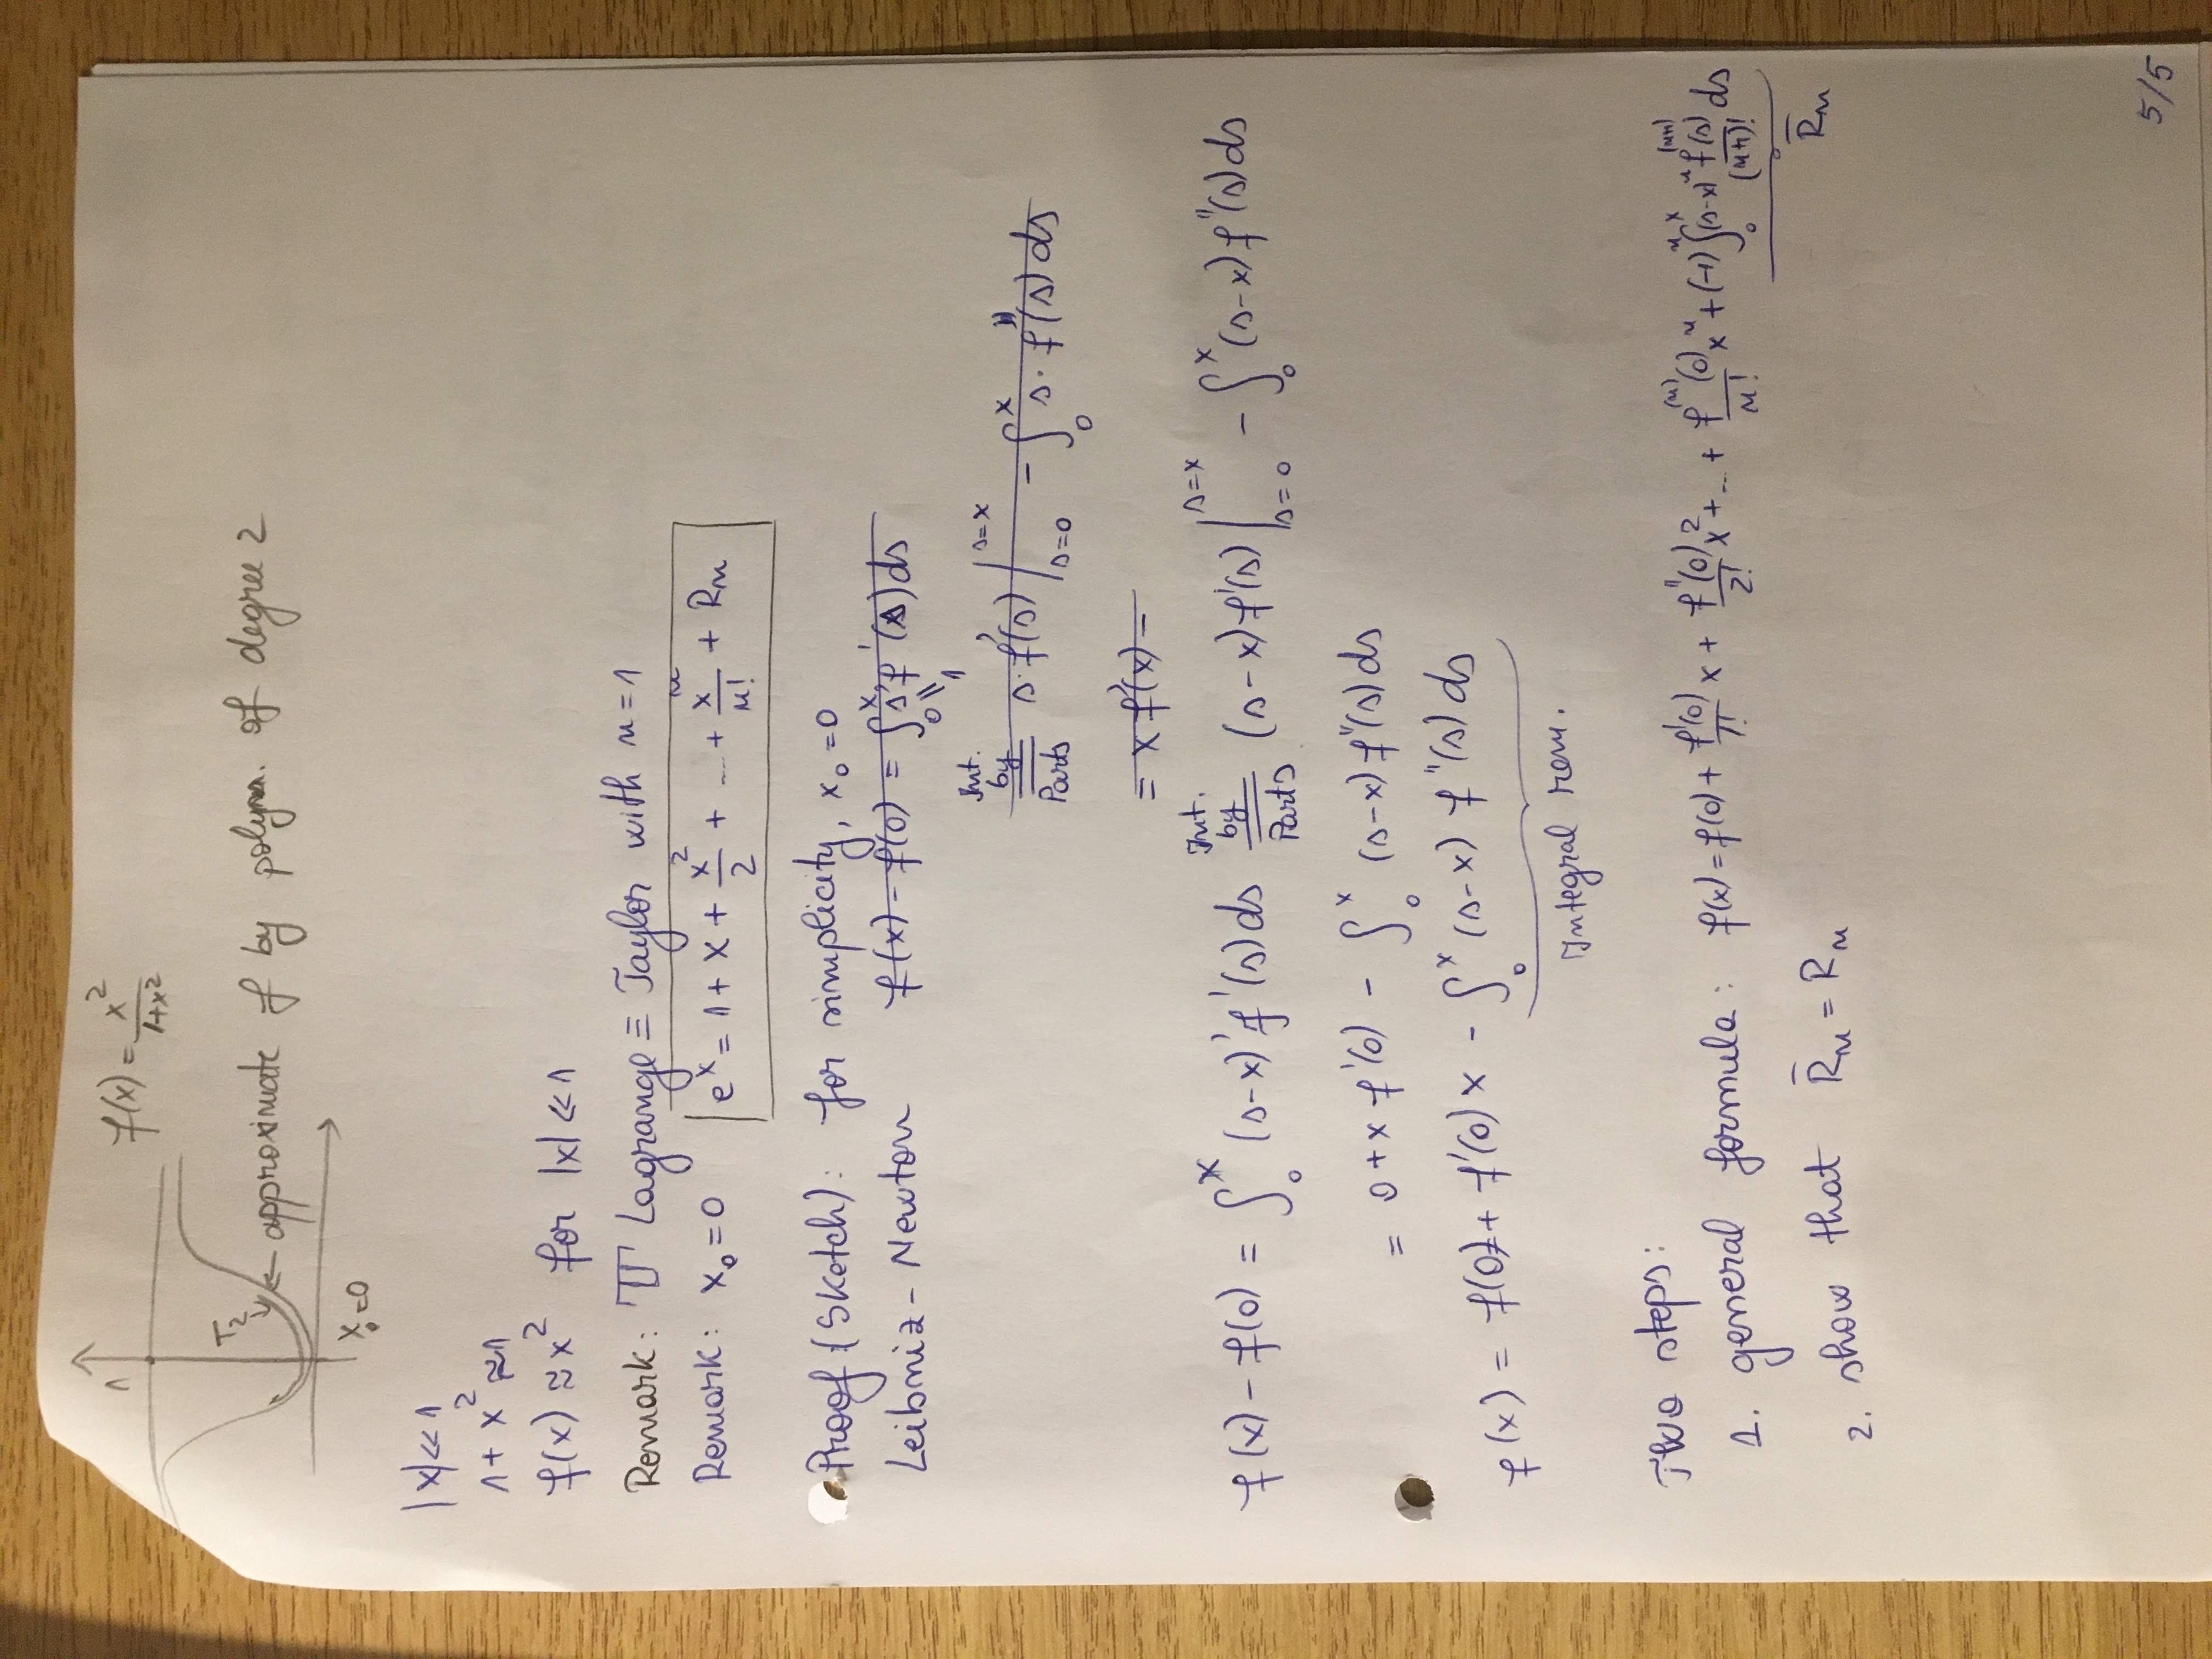 1
f(x) = x²/(1+x²)
T₂
← approximate f by polyn. of degree 2
x₀=0
|x| ≪ 1
1 + x² ≈ 1
f(x) ≈ x² for |x| ≪ 1
Remark: T Lagrange ≡ Taylor with n = 1
Remark: x₀ = 0 e^x = 1 + x + x²/2 + ... + x^n/n! + Rn
Proof (Sketch): for simplicity, x₀ = 0
Leibniz - Newton f(x) - f(0) = ∫₀^x s' f'(s) ds
1
Int. by Parts = s · f'(s) |_{s=0}^{s=x} - ∫₀^x s · f''(s) ds
= x f'(x) -
f(x) - f(0) = ∫₀^x (s-x)' f'(s) ds Int. by Parts = (s-x) f'(s) |_{s=0}^{s=x} - ∫₀^x (s-x) f''(s) ds
= 0 + x f'(0) - ∫₀^x (s-x) f''(s) ds
f(x) = f(0) + f'(0) x - ∫₀^x (s-x) f''(s) ds
Integral rem.
Two steps:
1. general formula: f(x) = f(0) + f'(0)/1! x + f''(0)/2! x² + ... + f^(n)(0)/n! x^n + (-1)^n ∫₀^x (s-x)^n f^(n+1)(s)/(n+1)! ds
R̄n
2. show that R̄n = Rn
5/5